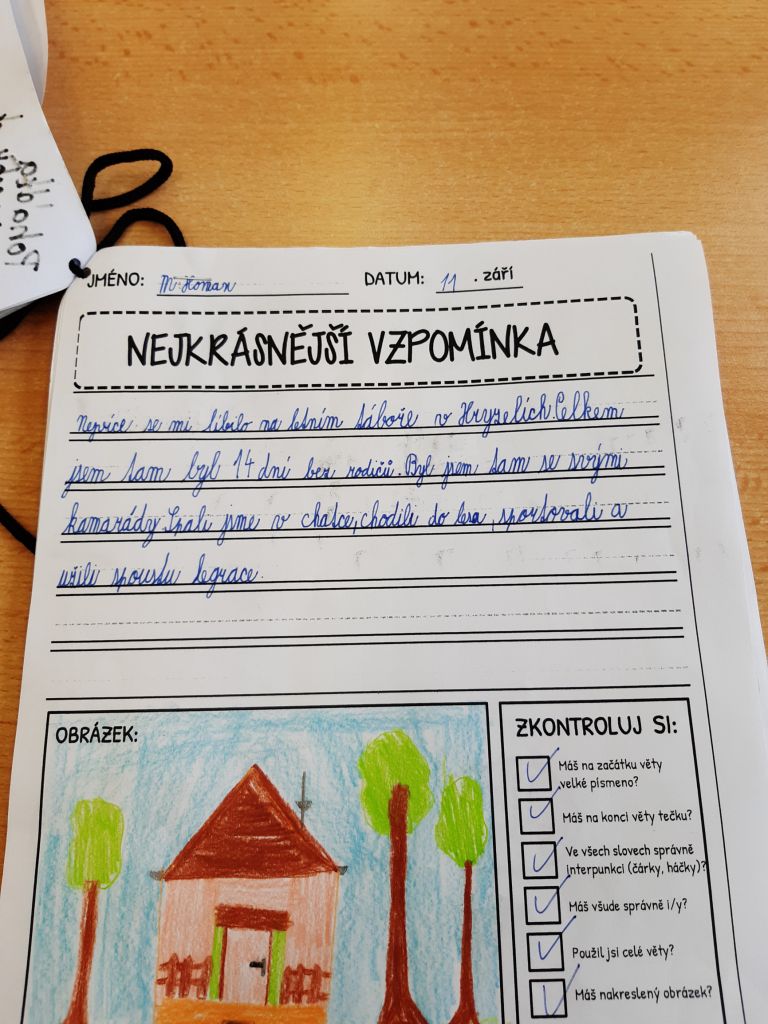 JMÉNO: M. Homan DATUM: 11 . září
NEJKRÁSNĚJŠÍ VZPOMÍNKA
Nejvíce se mi líbilo na letním táboře v Hryzelích. Celkem
jsem tam byl 14 dní bez rodičů. Byl jsem tam se svými
kamarády. Spali jsme v chatce, chodili do lesa, sportovali a
užili spoustu legrace.
OBRÁZEK:
ZKONTROLUJ SI:
Máš na začátku věty
velké písmeno?
Máš na konci věty tečku?
Ve všech slovech správně
interpunkci (čárky, háčky)?
Máš všude správně i/y?
Použil jsi celé věty?
Máš nakreslený obrázek?